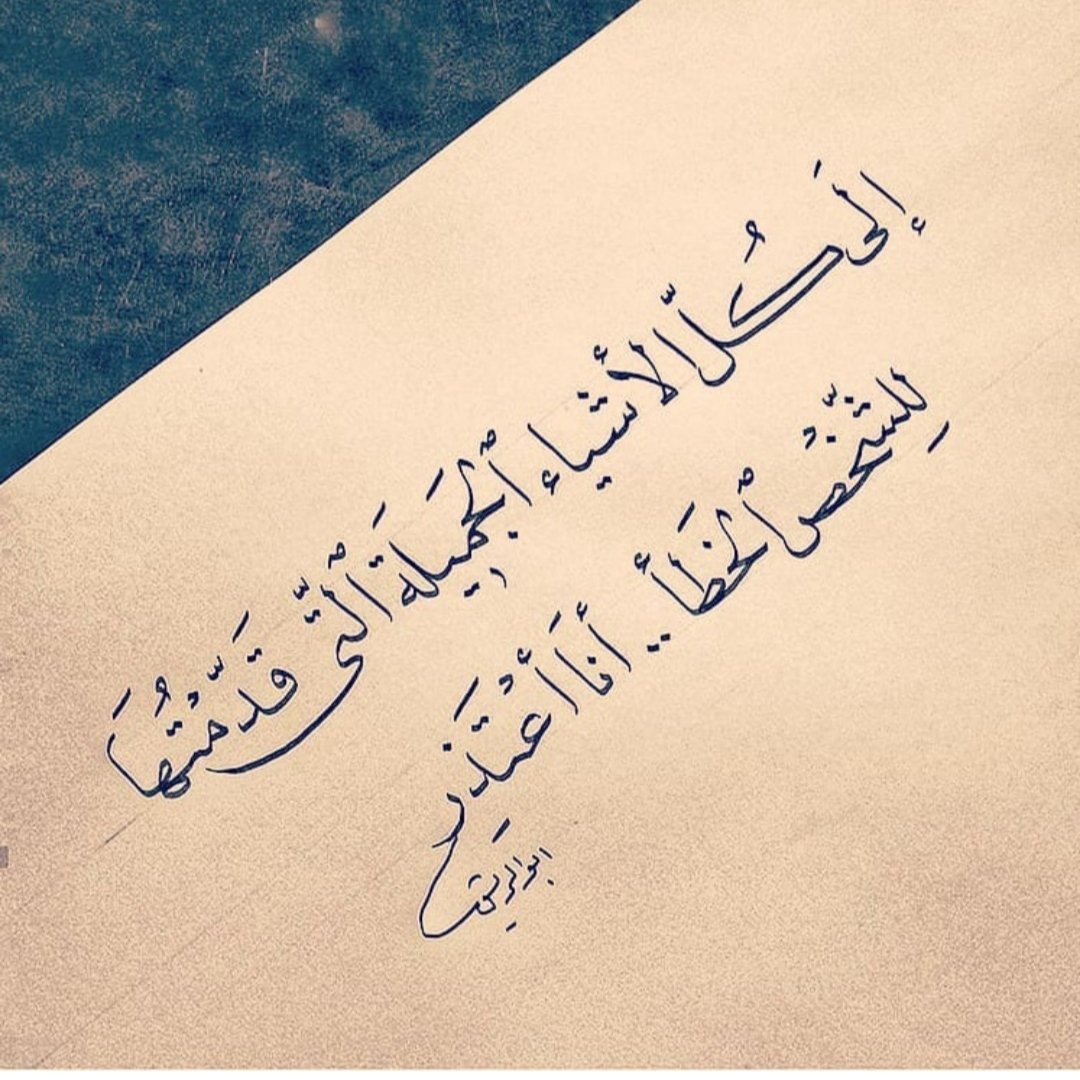 إلَى كُلّ الأشياء ٱلجَميلةَ ٱلتّي قَدّمْتُهَا
لِلشّخْص ٱلخَطأ .. أنَا أعْتَذر